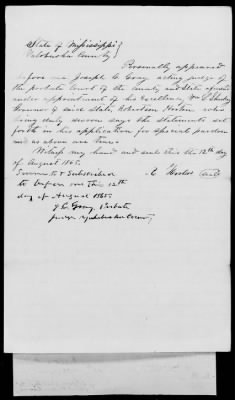 State of Mississippi }
Yalobusha County }
Personally appeared
before me Joseph C Gray acting judge of
the probate Court of the County and State aforesaid
under appointment of his Excellency Wm L Sharkey
Governor of said State Robertson Horton who
being duly sworn says the statements set
forth in this application for special pardon
and as above are true.
Witness my hand and seal this the 12th day
of August 1865.
Sworn to & Subscribed
to before me this 12th
day of August 1865
J C Gray Probate
judge Yalobusha County
R Horton Seal